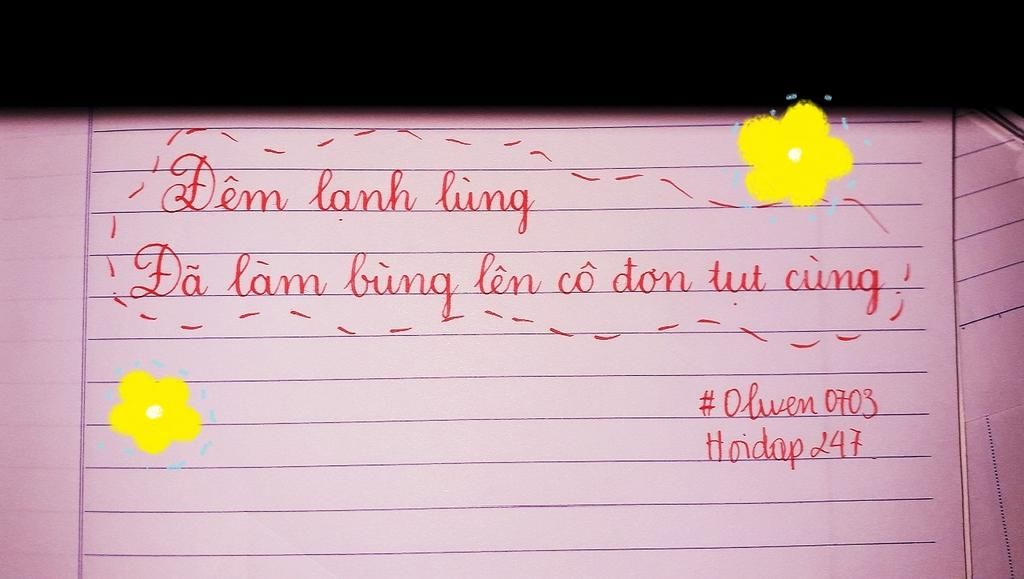 Đêm lạnh lùng
Đã làm bùng lên cô đơn tụt cùng
#Olwen0703
Hoidap247